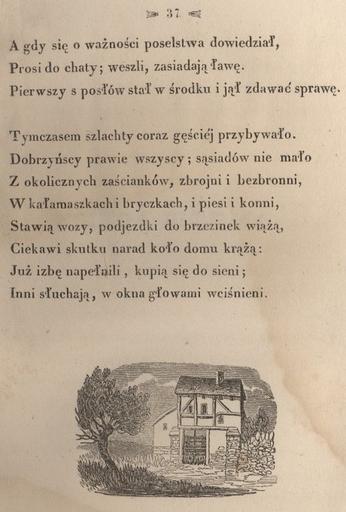 37
A gdy się o ważności poselstwa dowiedział,
Prosi do chaty; weszli, zasiadają ławę.
Pierwszy s posłów stał w środku i jął zdawać sprawę.
Tymczasem szlachty coraz gęściéj przybywało.
Dobrzyńscy prawie wszyscy; sąsiadów nie mało
Z okolicznych zaścianków, zbrojni i bezbronni,
W kałamaszkach i bryczkach, i piesi i konni,
Stawią wozy, podjezdki do brzezinek wiążą,
Ciekawi skutku narad koło domu krążą:
Już izbę napełnili, kupią się do sieni;
Inni słuchają, w okna głowami wciśnieni.